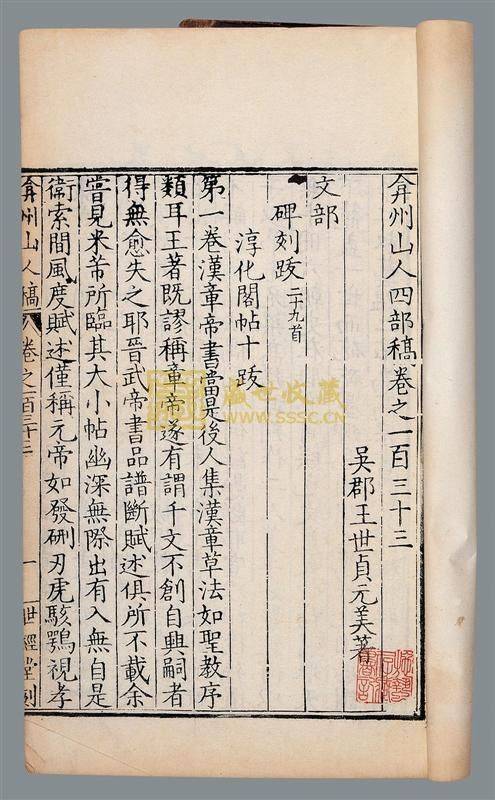 弇州山人四部稿卷之一百三十三
吳郡王世貞元美著
文部
碑刻跋二十九首
淳化閣帖十跋
第一卷漢章帝書當是後人集漢章草法如聖教序
類耳王著既謬稱章帝遂有謂千文不創自興嗣者
得無愈失之耶晉武帝書品譜斷賦述俱所不載余
嘗見米芾所臨其大小帖幽深無際出有入無自是
衛索間風度賦述僅稱元帝如發硎刃虎駭鶚視孝
弇州山人稿 卷之一百三十三 一 世經堂刻
盛世收藏
WWW.SSSC.CN